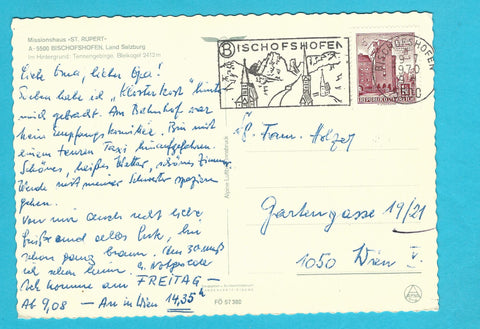 Missionshaus «ST. RUPERT»
A-5500 BISCHOFSHOFEN, Land Salzburg
Im Hintergrund: Tennengebirge, Bleikogel 2412 m
Liebe Oma, lieber Opa!
habe ich „Klosterkost“
mich gebadet. Am Bahnhof war
kein Empfangskomitee. Bin mit
einem teuren Taxi hinaufgefahren.
Schönes, heißes Wetter, schönes Zimmer.
Werde mit meiner Schwester spazieren
gehen.
Von mir auch recht liebe
Grüße und alles Gute, bin
schon ganz braun.
ich schon
Ich komme am FREITAG —
Ab 9,08 — An in Wien 14,35 h
BISCHOFSHOFEN
BISCHOFSHOFEN
REPUBLIK ÖSTERREICH
Fam. Holzer
Gartengasse 19/21
1050 Wien V.
FÖ 57 380